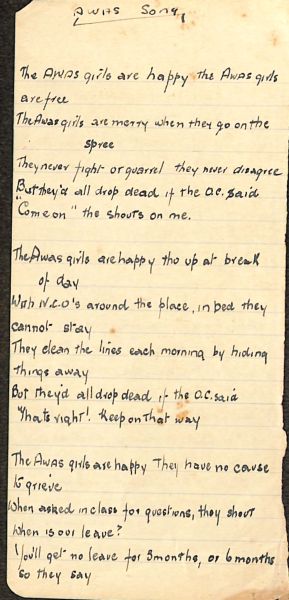 AWAS Song
The AWAS girls are happy the AWAS girls
are free
The Awas girls are merry when they go on the
spree
They never fight or quarrel they never disagree
But they'd all drop dead if the O.C. said
"Come on" the shouts on me.
The Awas girls are happy tho up at break
of day
With N.C.O's around the place, in bed they
cannot stay
They clean the lines each morning by hiding
things away
But they'd all drop dead if the O.C. said
"Thats right! Keep on that way
The Awas girls are happy They have no cause
to grieve
When asked in class for questions, they shout
When is our leave?
You'll get no leave for 3 months, or 6 months
so they say